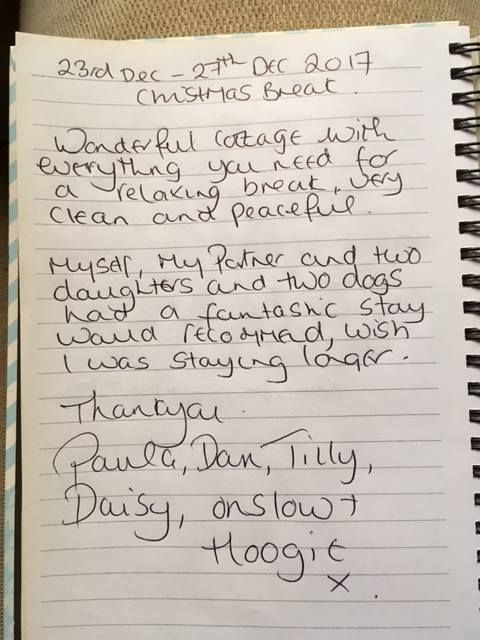 23rd Dec - 27th Dec 2017
Christmas Break.
Wonderful cottage with
everything you need for
a relaxing break, very
clean and peaceful.
Myself, My Partner and two
daughters and two dogs
had a fantastic stay
would recommend, wish
I was staying longer.
Thankyou.
Paula, Dan, Tilly,
Daisy, onslow +
Hoogie
x.